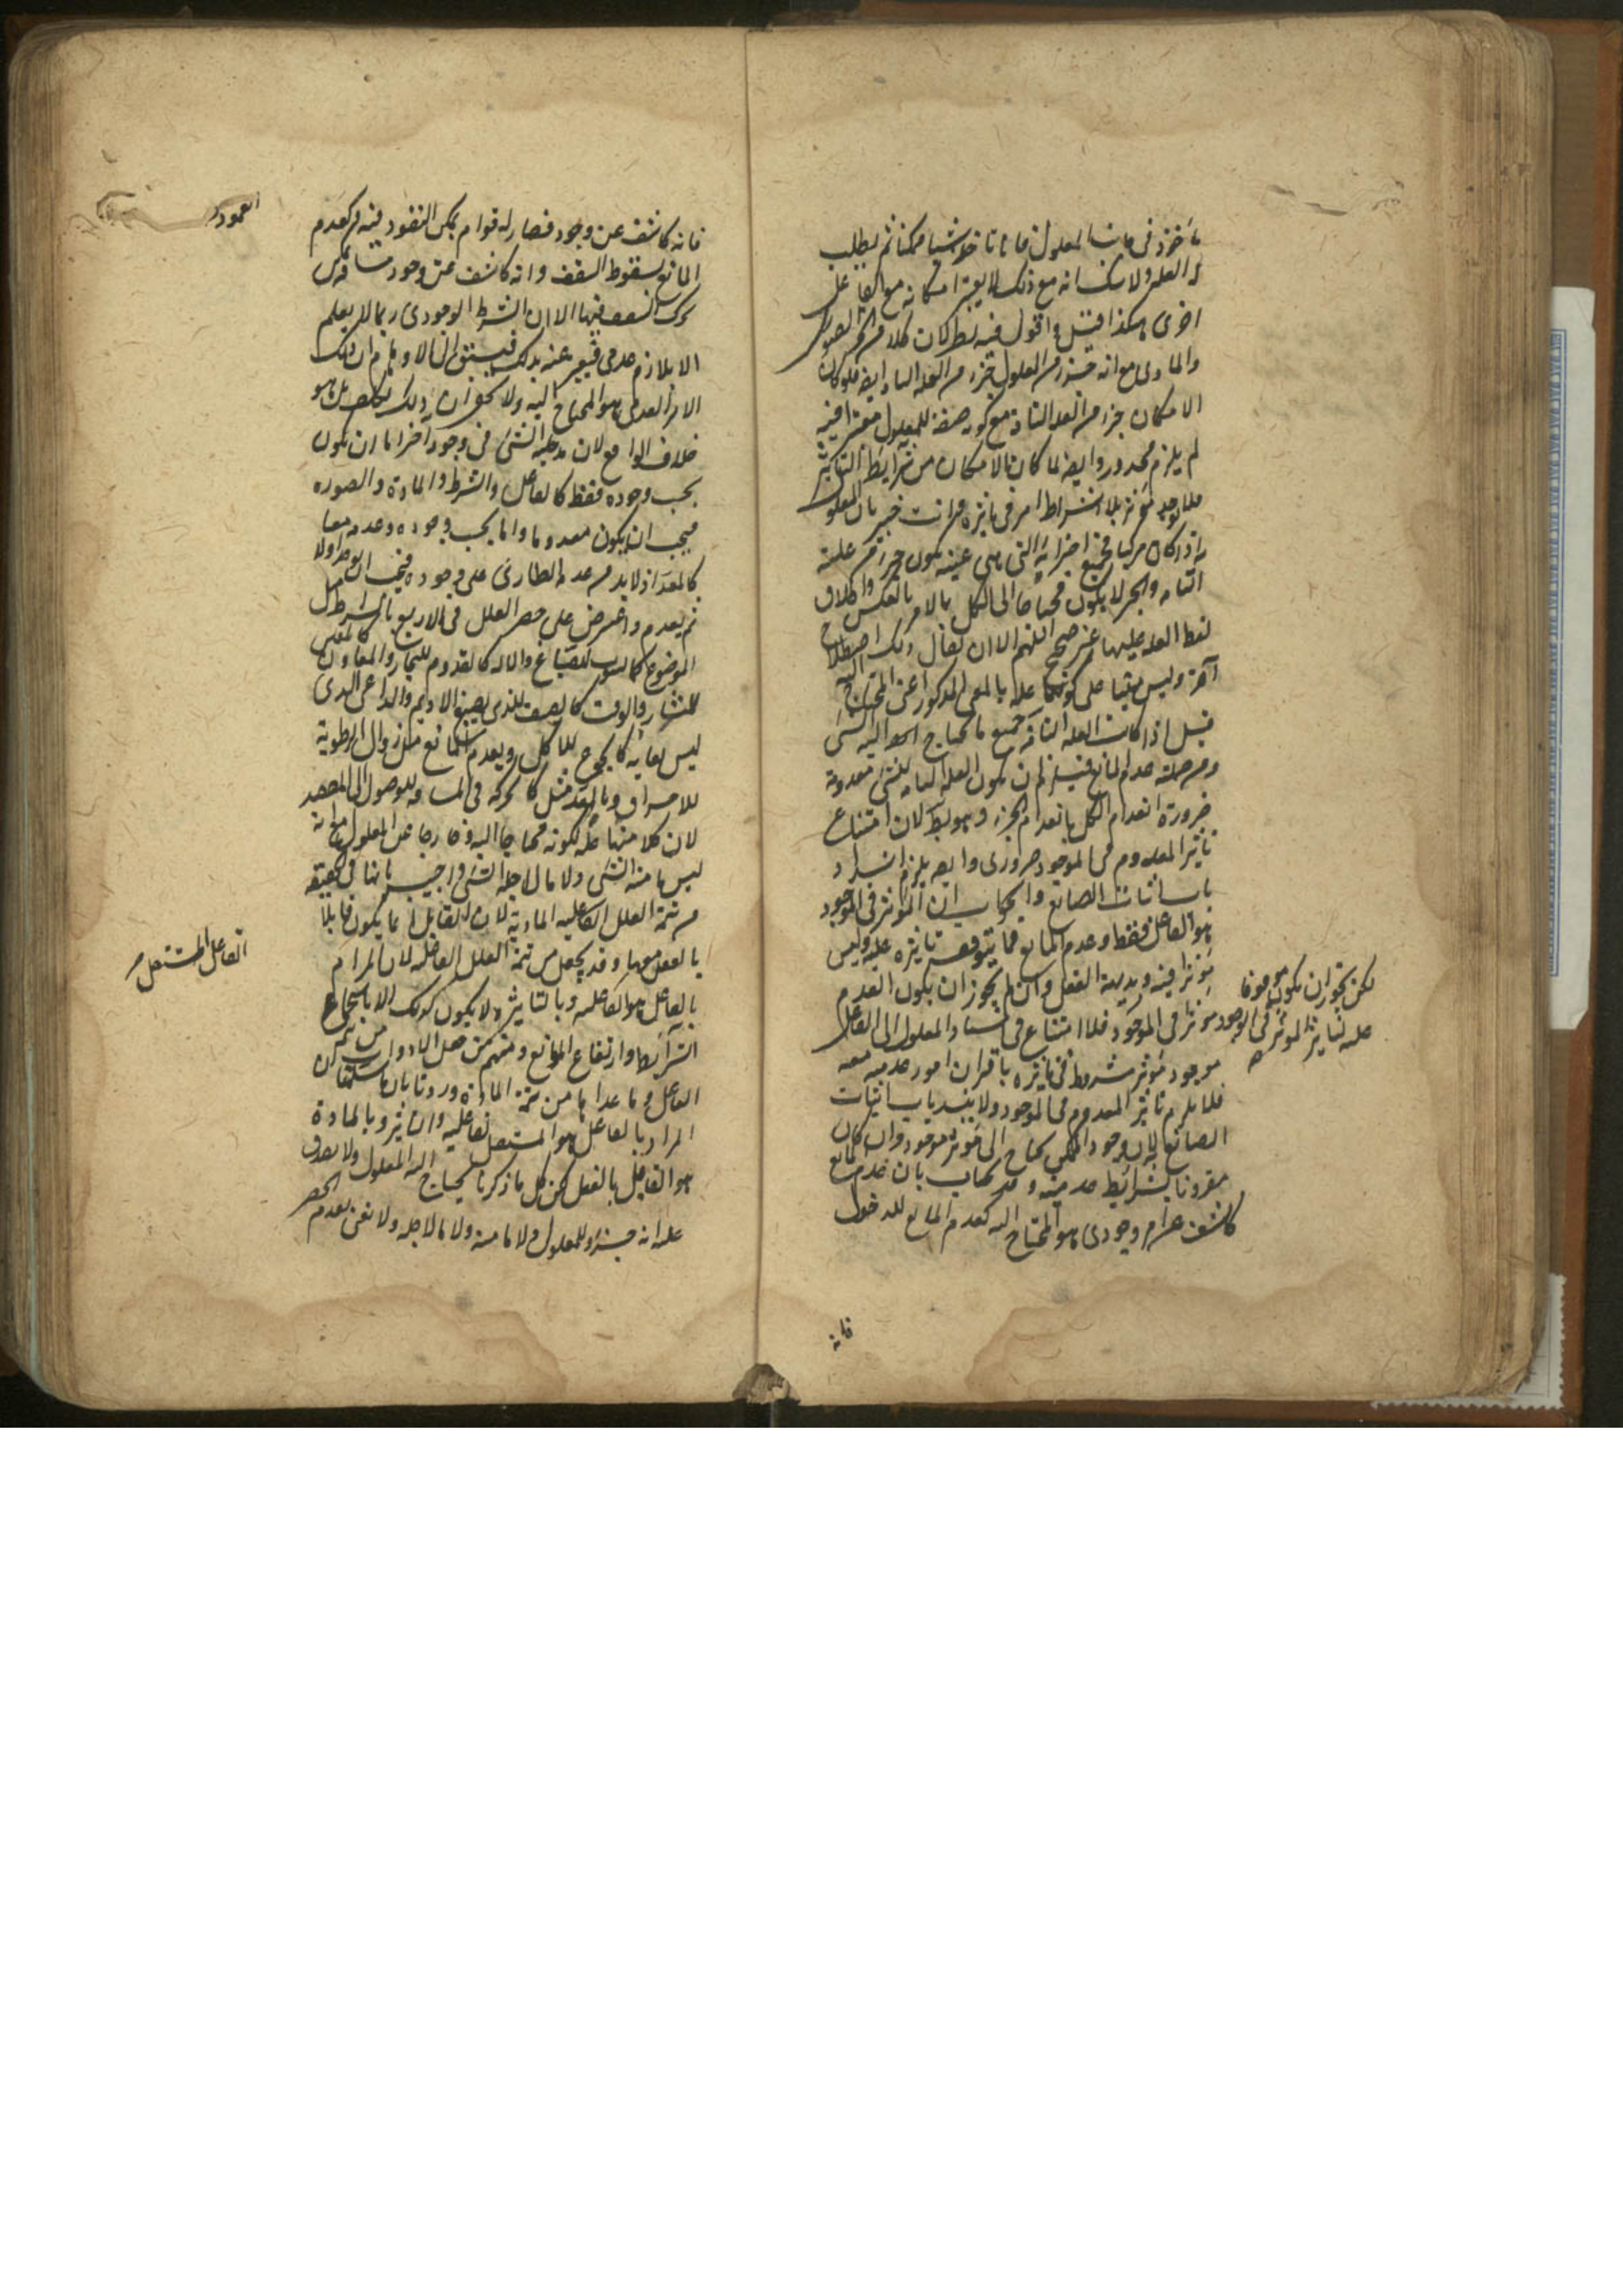 مأخوذ في جانب المعلول فانا ناخذ شيئا ممكنا ثم نطلب
له العلة ولا شك انه مع ذلك لا يعتبر امكانه مع الفاعل
اخرى هكذا قيل واقول فيه نظر لان كلا من الجزء الصوري
والمادي مع انه جزء من المعلول جزء من العلة التامة ايضا فلو كان
الامكان جزء من العلة التامة مع كونه صفة للمعلول معتبرا فيه
لم يلزم محذور وايضا لما كان الامكان من شرايط التاثير
فلا يوجد مؤثر بلا اشتراط امر في تاثيره وانت خبير بان المعلول
اذا كان مركبا فجميع اجزائه التي هي عينه يكون جزء من علته
التامة والجزء لا يكون محتاجا الى الكل بل الامر بالعكس واطلاق
لفظ العلة عليها غير صحيح اللهم الا ان يقال ذلك اصطلاح
آخر وليس مبنيا على كونها علة بالمعنى المذكور اعني المحتاج اليه
قيل اذا كانت العلة التامة جميع ما يحتاج اليه الشئ
ومن جملته عدم المانع فيلزم ان يكون العلة التامة للشئ معدومة
ضرورة انعدام الكل بانعدام الجزء وهو بط لان امتناع
تاثير المعدوم في الموجود ضروري وايضا يلزم انسداد
باب اثبات الصانع والجواب ان المؤثر في الموجود
هو الفاعل فقط وعدم المانع مما يتوقف تاثيره عليه وليس
مؤثرا فيه وبديهة العقل وان لم يجوز ان يكون العدم
مؤثرا في الموجود فلا امتناع في استناد المعلول الى الفاعل
لكن يجوز ان يكون موقوفا
عليه لتاثير المؤثر في الوجود صح
موجود مؤثر مشروط في تاثيره باقتران امور عدمية معه
فلا يلزم تاثير المعدوم في الموجود ولا ينسد باب اثبات
الصانع لان وجود الممكن يحتاج الى مؤثر موجود وان كان
مقرونا بشرائط عدمية وقد يجاب بان عدم المانع
كاشف عن امر وجودي هو المحتاج اليه كعدم المانع للدخول
فانه
فانه كاشف عن وجود فضاء له قوام يمكن النفوذ فيه وكعدم
العمود
المانع لسقوط السقف وانه كاشف عن وجود مسافة يمكن
تحرك السقف فيها الا ان الشرط الوجودي ربما لا يعلم
الا بلازم عدمي فيعبر عنه بذلك فيسبق الى الاوهام ان ذلك
الامر العدمي هو المحتاج اليه ولا يخفى ان ذلك تكلف بل هو
خلاف الواقع لان مدخلية الشئ في وجود آخر اما ان يكون
بحسب وجوده فقط كالفاعل والشرط والمادة والصورة
فيجب ان يكون معدوما واما بحسب وجوده وعدمه معا
كالمعد اذ لا بد من عدمه الطارئ على وجوده فيجب ان يوجد اولا
ثم يعدم واعترض على حصر العلل في الاربع بالشرط مثل
الموضوع كالثوب للصباغ والآلة كالقدوم للنجار والمعاون كالمعين
للنشار والوقت كالصيف للذي يصبغ الاديم والداعي الذي
ليس بغاية كالجوع للاكل وبعدم المانع مثل زوال الرطوبة
للاحراق وبالمعد مثل كالحركة في المسافة للوصول الى المقصد
لان كلا منها علة لكونه محتاجا اليه وخارجا عن المعلول مع انه
ليس ما منه الشئ ولا ما لاجله الشئ واجيب بانها في الحقيقة
من تتمة العلل الفاعلية المادية لان القابل انما يكون قابلا
بالفعل معها وقد يجعل من تتمة العلل الفاعلة لان المراد
الفاعل المستقل
بالفاعل هو الفاعلية وبالتاثير ولا يكون كذلك الا باستجماع
الشرائط وارتفاع الموانع ومنهم من جعل الادوات من تتمة
الفاعل وما عداها من تتمة المادة ورد بان
المراد بالفاعل هو المستقل بالفاعلية والتاثير وبالمادة
هو القابل بالفعل لكن كل ما ذكرنا يحتاج اليه المعلول ولا يصدق
عليه انه جزء للمعلول ولا ما منه ولا ما لاجله ولا نعني بعدم الحصر